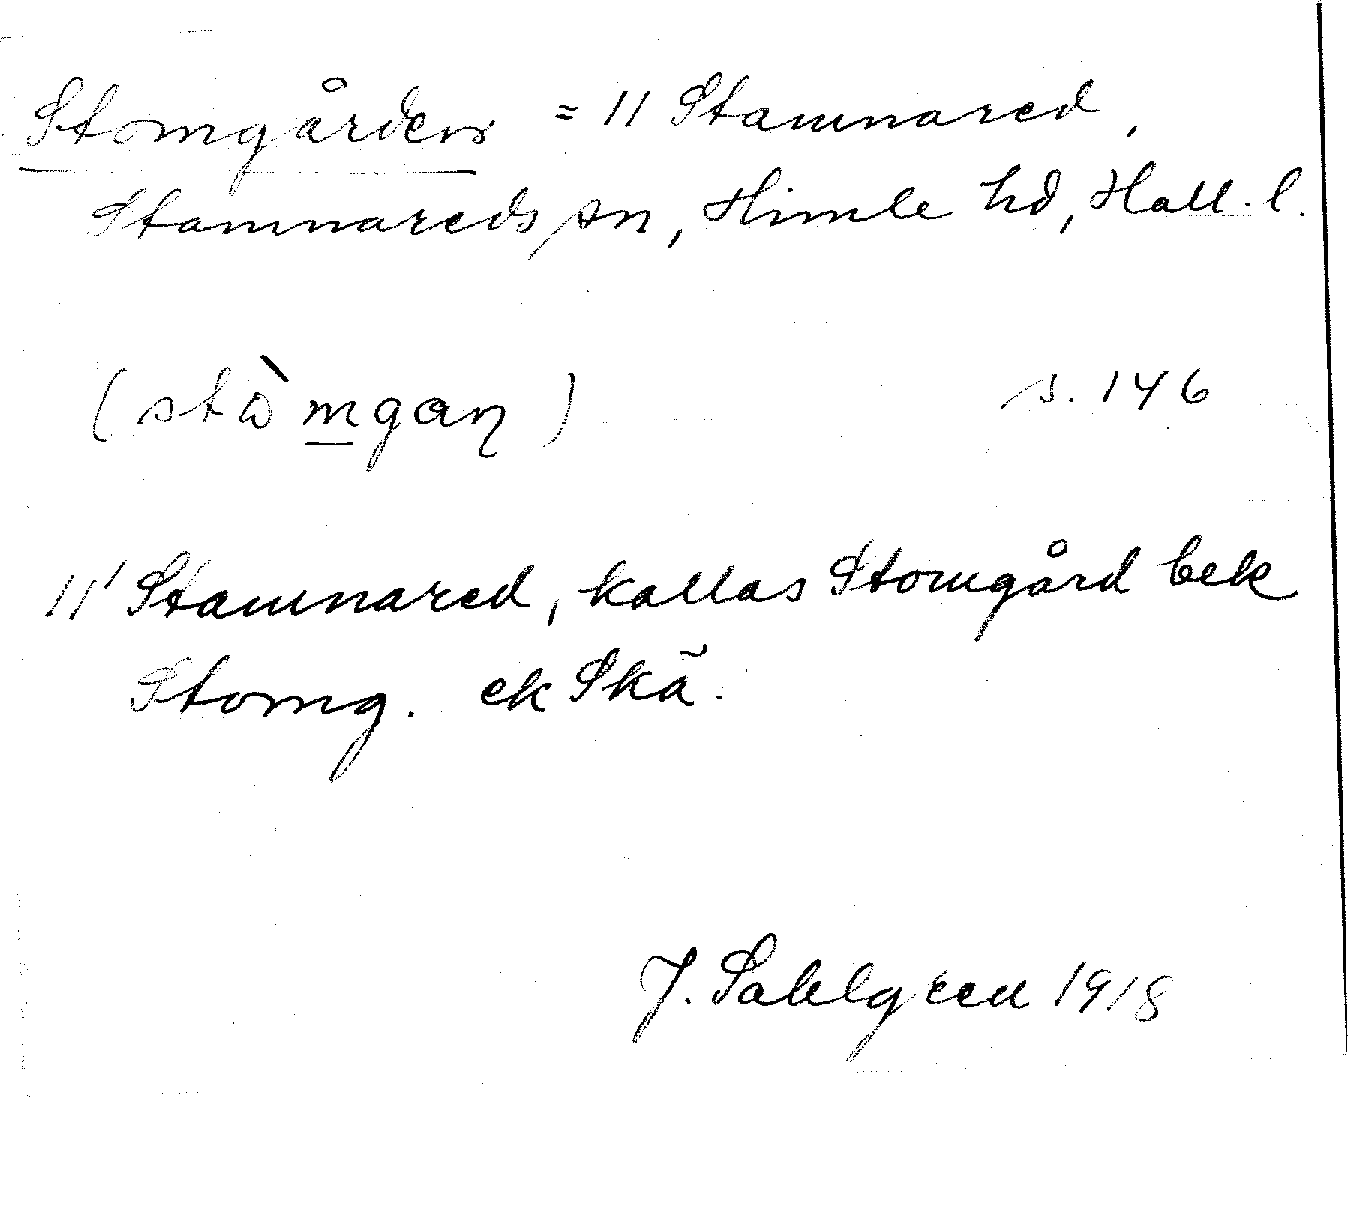 Stomgården = 11 Stamnared,
Stamnareds sn, Himle hd, Hall. l.
(stòmgaɳ) s. 146
11¹ Stamnared, kallas Stomgård bek
Stomg. ek Skã.
J. Sahlgren 1918